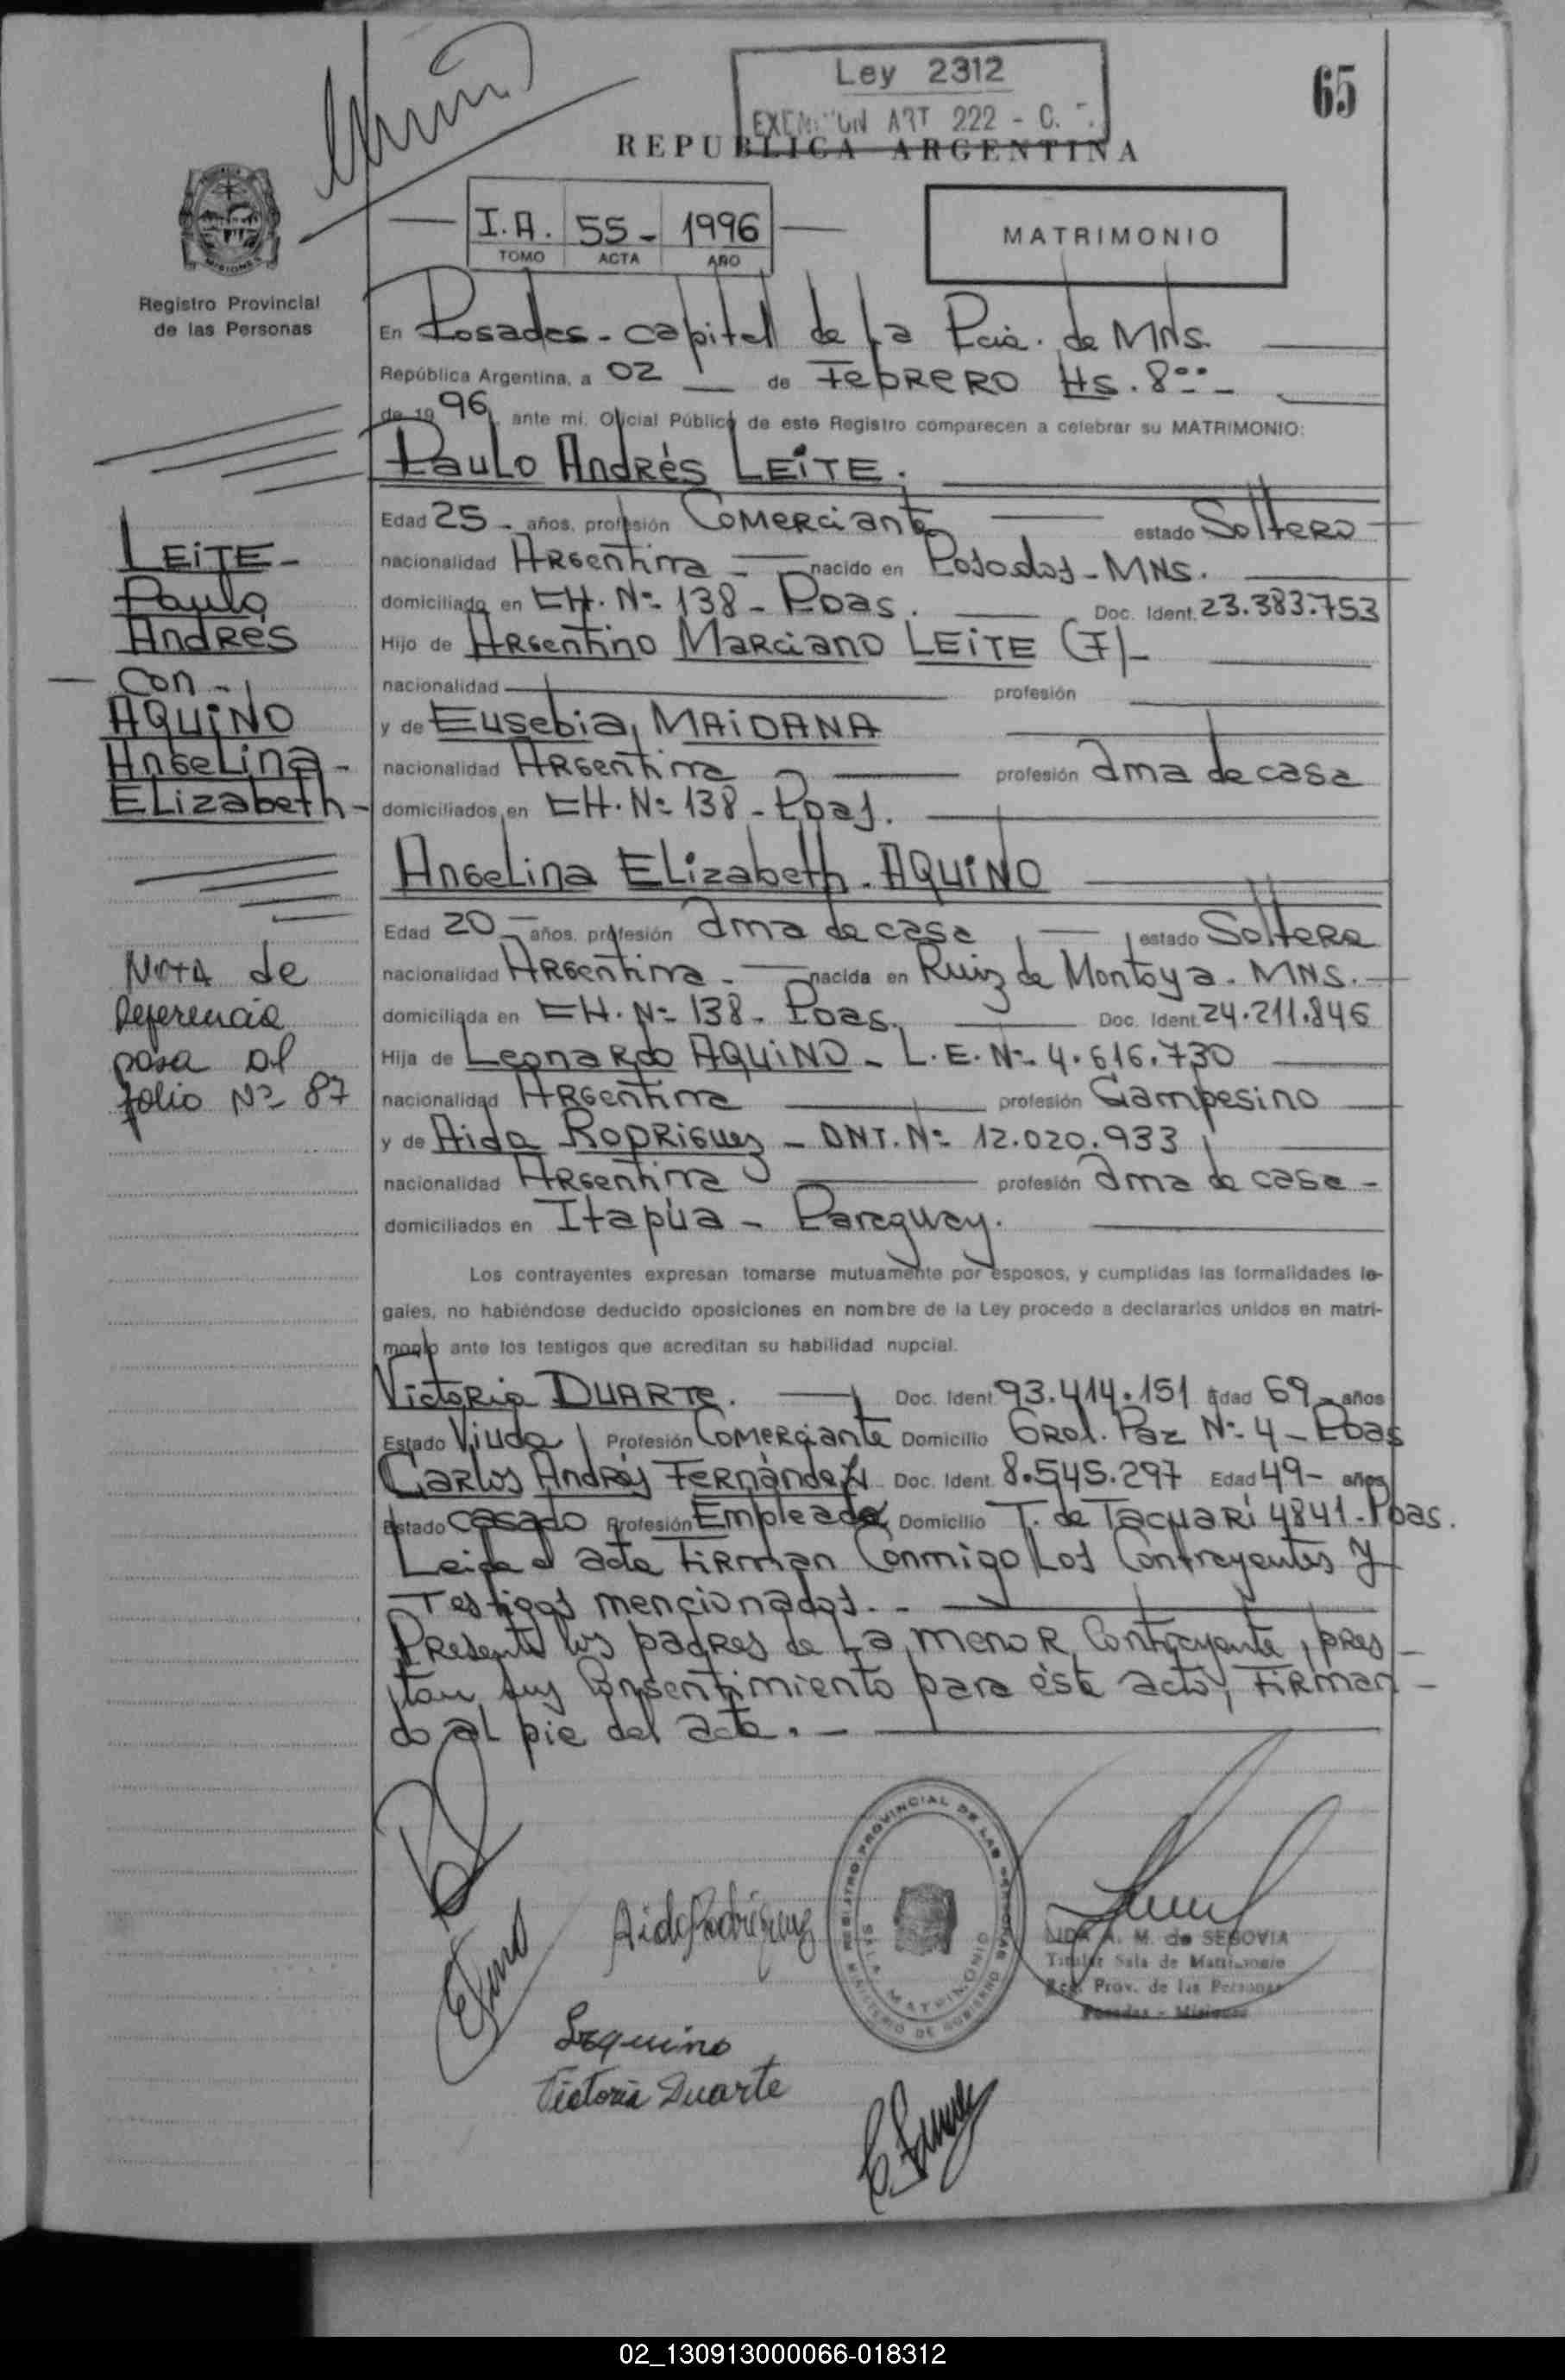 Ley 2312
EXENCION ART 222 - C.
65
REPUBLICA ARGENTINA
I.A. 55- 1996
TOMO ACTA AÑO
MATRIMONIO
MISIONES
Registro Provincial
de las Personas
En Posadas - capital de La Pcia. de MNS.
República Argentina, a 02 de FebRERO Hs. 8
de 1996, ante mi, Oficial Público de este Registro comparecen a celebrar su MATRIMONIO:
PauLo AndRés LEiTE.
Edad 25 - años, profesión Comerciante estado Soltero
nacionalidad Argentina - nacido en Posadas - MNS.
domiciliado en CH. Nº 138 - Poas. Doc. Ident. 23.383.753
Hijo de Argentino Marciano LEiTE (F)-
nacionalidad profesión
y de Eusebia MAiDANA
nacionalidad Argentina profesión ama de casa
domiciliados en CH. Nº 138 - Poas.
Angelina Elizabeth - AQUiNO
Edad 20 - años, profesión ama de casa estado Soltera
nacionalidad Argentina - nacida en Ruiz de Montoya - MNS.
domiciliada en CH. Nº 138 - Poas. Doc. Ident. 24.211.846
Hija de Leonardo AQUiNO - L.E. Nº 4.616.730
nacionalidad Argentina profesión Campesino
y de Aida RODRiGuez - DNI. Nº 12.020.933
nacionalidad Argentina profesión ama de casa -
domiciliados en Itapúa - Paraguay.
Los contrayentes expresan tomarse mutuamente por esposos, y cumplidas las formalidades le-
gales, no habiéndose deducido oposiciones en nombre de la Ley procedo a declararlos unidos en matri-
monio ante los testigos que acreditan su habilidad nupcial.
Victoria DUARTE. Doc. Ident. 93.414.151 Edad 69 - años
Estado Viuda Profesión Comerciante Domicilio Gral. Paz Nº 4 - Poas
Carlos Andrés Fernández Doc. Ident. 8.545.297 Edad 49 - años
Estado casado Profesión Empleado Domicilio T. de Tacuarí 4841 - Poas.
Leida el acta firman Conmigo Los Contrayentes y
Testigos mencionados. -
Presente los padres de La menor Contrayente, pres
tan sus Consentimiento para éste acto, Firman -
do al pie del acta. -
LEiTE -
Paulo
Andrés
con -
AQUiNO
Angelina -
Elizabeth -
Nota de
Referencia
pasa al
folio Nº 87
Aida Rodriguez
REGISTRO PROVINCIAL DE LAS PERSONAS
SALA MATRIMONIO
MINISTERIO DE GOBIERNO
A. M. de SEGOVIA
Titular Sala de Matrimonio
Reg. Prov. de las Personas
Posadas - Misiones
Victoria Duarte
02_130913000066-018312